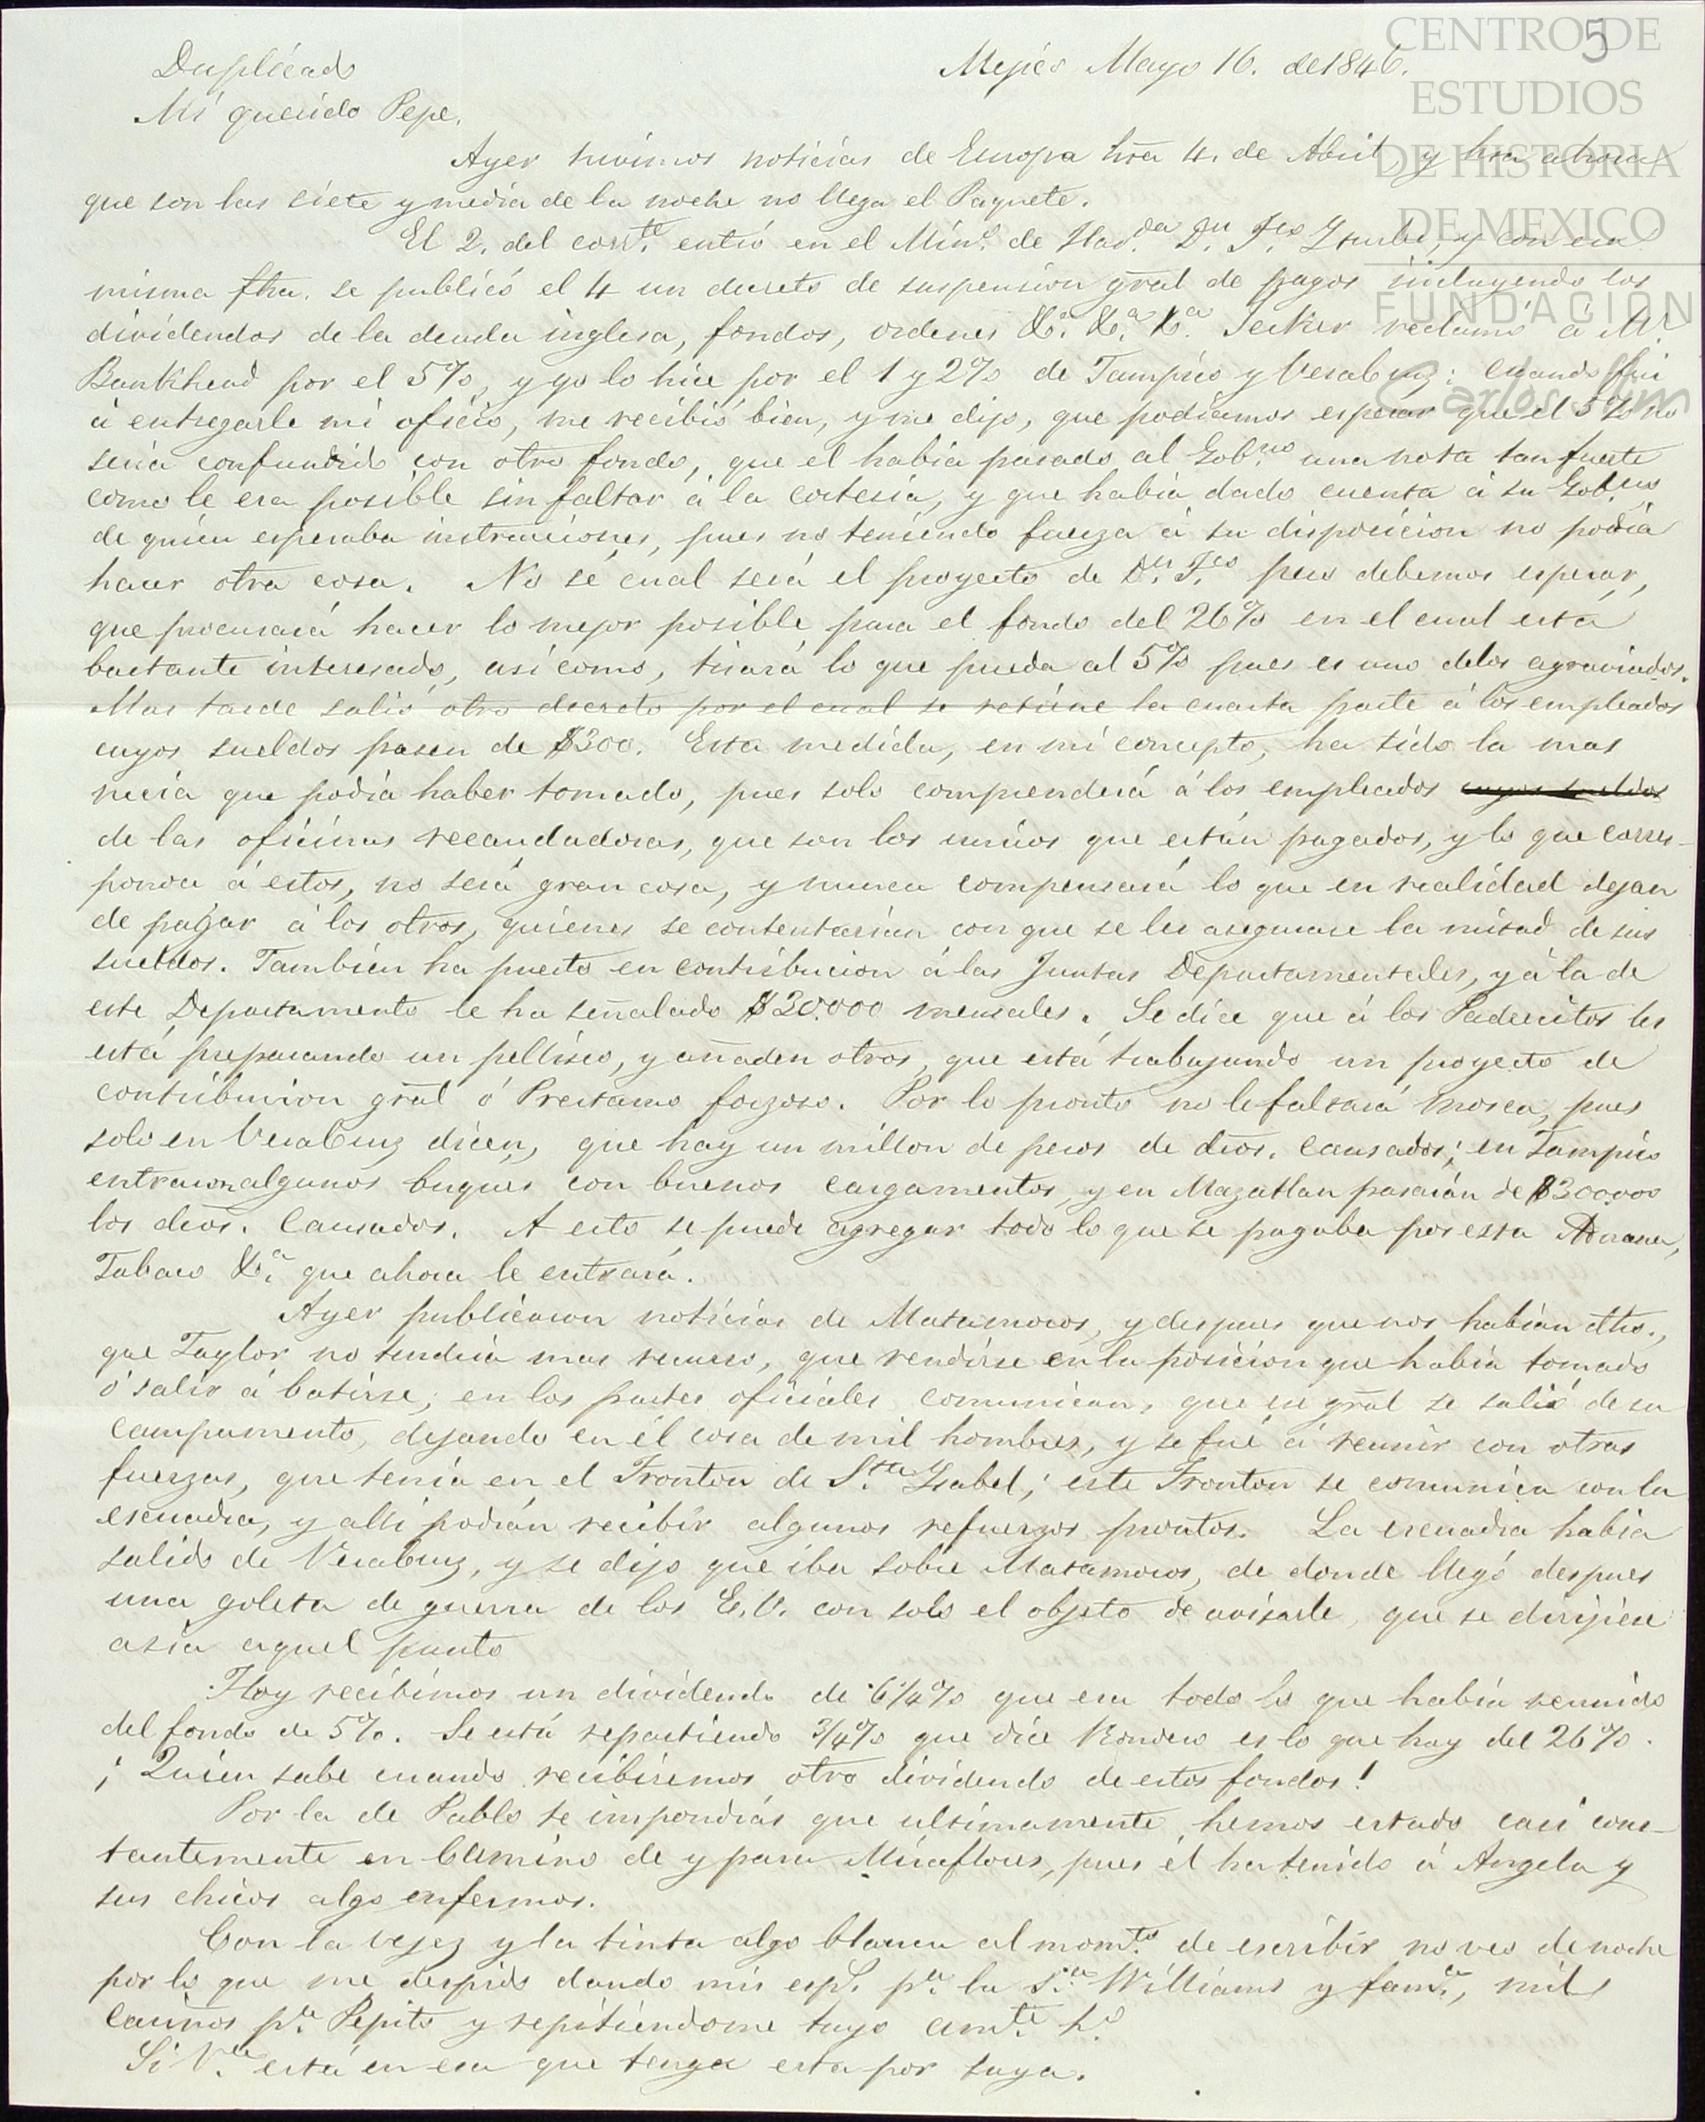 5
CENTRO DE
ESTUDIOS
DE HISTORIA
DE MEXICO
FUNDACIÓN
Carlos Slim
Duplicado
Mejico Mayo 16. de 1846.
Mi querido Pepe,
Ayer tuvimos noticias de Europa hta 4. de Abril, y hta ahora
que son las siete y media de la noche no llega el Paquete.
El 2. del corrte. entró en el Mino. de Hacda. Dn. Fco. Yturbe, y con esa
misma fha. se publicó el 4 un decreto de suspension gral de pagos incluyendo los
dividendos de la deuda inglesa, fondos, ordenes &a. &a. &a. Jecker reclamó á Mr.
Bankhead por el 5%, y yo lo hice por el 1 y 2% de Tampico y Veracruz: cuando fui
á entregarle mi oficio, me recibió bien, y me dijo, que podiamos esperar que el 5% no
seria confundido con otro fondo, que el habia pasado al Gobno. una nota tan fuerte
como le era posible sin faltar á la cortesia, y que habia dado cuenta á su Gobno.
de quien esperaba instrucciones, pues no teniendo fuerza á su disposicion no podia
hacer otra cosa. No sé cual será el proyecto de Dn. Fco. pero debemos esperar,
que procurará hacer lo mejor posible para el fondo del 26% en el cual está
bastante interesado, asi como, tirará lo que pueda al 5% pues es uno delos agraviados.
Mas tarde salió otro decreto por el cual se retiene la cuarta parte á los empleados
cuyos sueldos pasen de $300. Esta medida, en mi concepto, ha sido la mas
necia que podia haber tomado, pues solo comprenderá á los empleados cuyos sueldos
de las oficinas recaudadoras, que son los unicos que están pagados, y lo que corres-
ponda á estos, no será gran cosa, y nunca compensará lo que en realidad dejan
de pagar á los otros, quienes se contentarian con que se les asegurase la mitad de sus
sueldos. Tambien ha puesto en contribucion á las Juntas Departamentales, y á la de
este Departamento le ha señalado $30.000 mensales. Se dice que á los Padrecitos les
está preparando un pellisco, y añaden otros, que está trabajando un proyecto de
contribucion gral ó Prestamo forzoso. Por lo pronto no le faltará mosca, pues
solo en Veracruz dicen, que hay un millon de pesos de dros. causados; en Tampico
entraron algunos buques con buenos cargamentos, y en Mazatlan pasarán de $300.000
los dros. causados. A esto se puede agregar todo lo que se pagaba por esta Aduana,
Tabaco &a. que ahora le entrará.
Ayer publicaron noticias de Matamoros, y despues que nos habian dho.,
que Taylor no tendria mas recurso, que rendirse en la posicion que habia tomado
ó salir á batirse, en los partes oficiales comunican, que ese gral se salió de su
campamento, dejando en él cosa de mil hombres, y se fué á reunir con otras
fuerzas, que tenia en el Fronton de Sta. Ysabel; este Fronton se comunica con la
escuadra, y alli podrán recibir algunos refuerzos prontos. La escuadra habia
salido de Veracruz, y se dijo que iba sobre Matamoros, de donde llegó despues
una goleta de guerra de los E.U. con solo el objeto de avisarle, que se dirijiese
asia aquel punto
Hoy recibimos un dividendo de 6 1/4% que era todo lo que habia reunido
del fondo de 5%. Se está repartiendo 3/4% que dice Rondero es lo que hay del 26%.
¡Quien sabe cuando recibiremos otro dividendo de estos fondos!
Por la de Pablo te impondrás que ultimamente, hemos estado casi cons-
tantemente en camino de y para Miraflores, pues él ha tenido á Angela y
sus chicos algo enfermos.
Con la vejez y la tinta algo blanca al momto. de escribir no veo de noche
por lo que me despido dando mis esps. pa. la Sra. Williams y fama., mil
cariños pa. Pepito y repitiendome tuyo amte. ho.
Si Va. está en esa que tenga esta por suya.